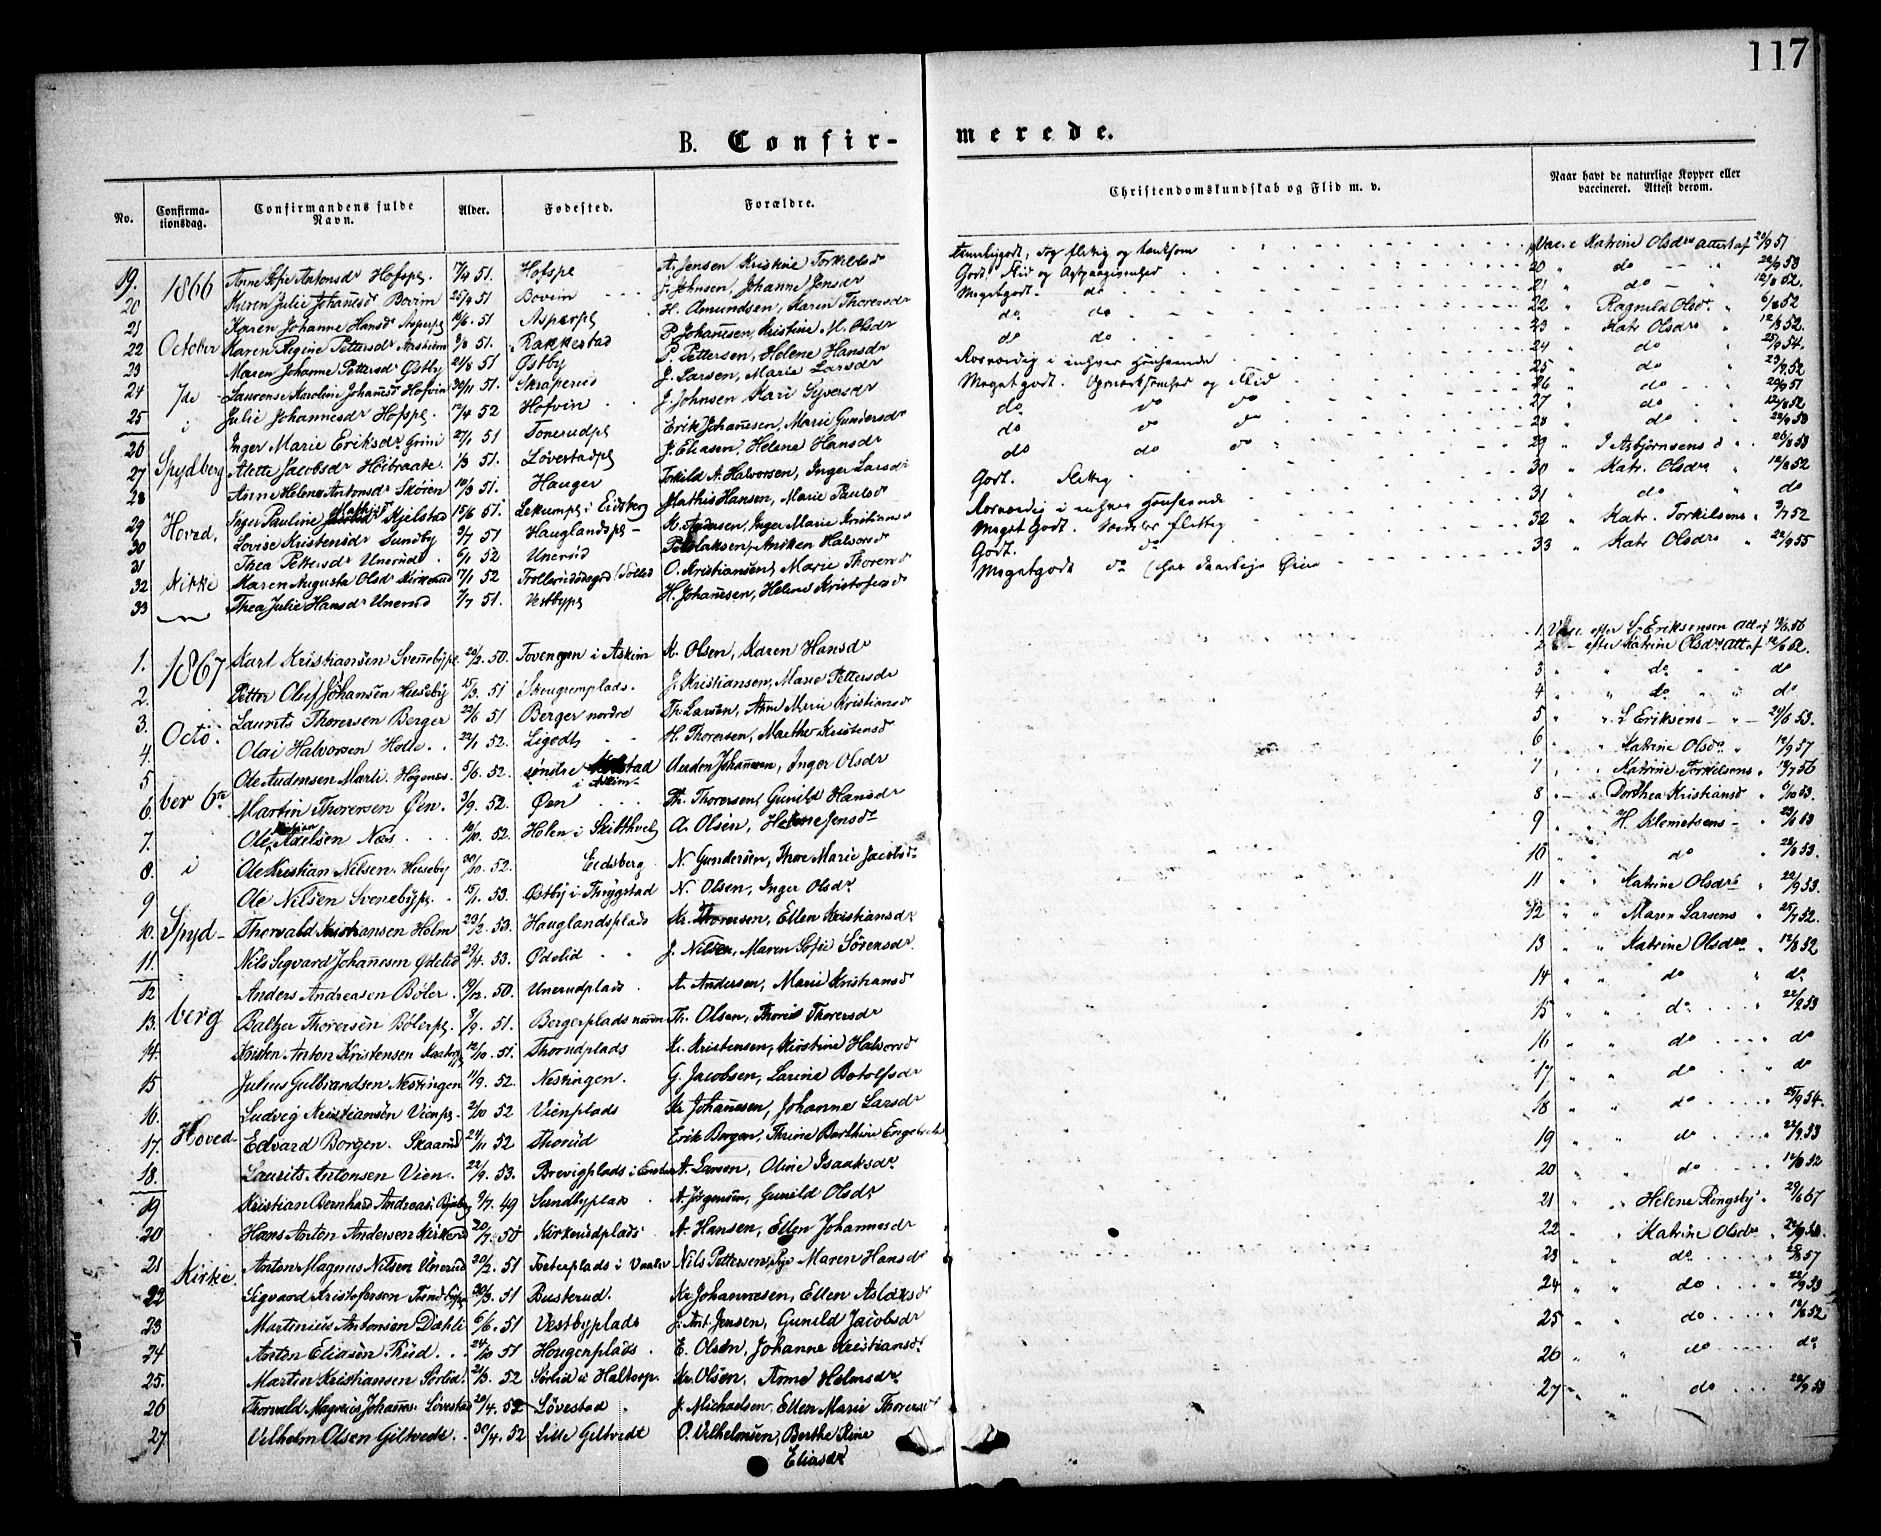 117
B. Confir- merede.
No. Confirma-tionsdag. Confirmandens fulde Navn. Alder. Fødested. Forældre. Christendomskundskab og Flid m. v. Naar havt de naturlige Kopper eller vaccineret. Attest derom.
19. 1866 Antonsdr Hofspl. 7/4 51. Hofspl A. Jensen Kristine Torkildsd og flittig og 19 Vac. e Katrine Olsdr attest af 22/9 51
20 Karen Julie Johansd Bovim 25/4 51 Bovim J. Johnsen, Johanne Jensdr Godt. Flid og 20 " do — " 22/9 53
21 Karen Johanne Hansdr Asperpl 51 Asperpl H. Amundsen, Karen Thorersdr Megetgodt. do 21 " do — " 12/8 52.
22 October Karen Regine Pettersdr 51. Rakkestad P. Johannesen, Kristine M. Olsdr do do 22 " Ragnild Olsdr " 6/8 52
23 Maren Johanne Pettersd Østby 21/8 51 Østby P. Pettersen, Helene Hansdr do do 23 " Katr Olsdr " 12/8 52.
24 7de Laurense Karoline Johansd Hofvin 30/11 51. Skraperud J. Larsen, Marie Larsdr i enhver Henseende 24 " do " 25/9 54.
25 i Julie Johannesdr Hofspl. 12/4 52 Hofvin J. Johnsen Kari Syversdr Megetgodt. Opmærksomhed og Flid 25 " do 52
26 Inger Marie Eriksdr Grini 27/1 51 Tonerudpl Erik Johansen, Marie Gundersdr do do do 26 " do 51
27 Spydberg Alette Jacobsdr Høitraate 1/3 51. Løvestadpl J. Eliasen, Helene Hansdr do do 27 " do 12/8 52
28 Anne Helene Antonsdr Skøien 51. Hauger Torkild A. Halvorsen, Inger Larsdr do do 28 " do 22/9 53
29 Hoved, Inger Pauline Kjelstad 15/6 51. Lekumpl i Eidsberg Mathis Hansen, Marie Paulsd Godt. Flittig 29 " I Asbjørnsens d 53
30 Lovise Kristensdr Sundby 9/7 51 Hauglandspl Inger Marie Kristiansd i enhver Henseende 30 " Katr. Olsdr " 12/8 52
31 Thea Pettersdr Unerud 6/1 52 Unerud Halvorsd Meget Godt. flittig 31 " do " do
32 Kirke Karen Augusta Olsd Kirkerud 17/1 52 O. Kristiansen, Marie Thorersd Godt. do 32 " Katr. Torkilsens " 9/7 52
33 Thea Julie Hansdr Unerud 7/7 51. Vestbypl H. Johansen, Helene Kristofersd Megetgodt do 33 " Katr Olsdr " 22/9 55
1. 1867 Karl Kristiansen Svenebypl. 50. i Askim K. Olsen, Karen Hansdr 1. Vac. efter Eriksensen Att af 56
2. Petter Oluf Johansen Huseby 15/3. 51 Skougumplads. J. Kristiansen, Marie Pettersdr 2 " efter Katrine Olsdr Att af 12/8 52.
3. Laurits Thorersen Berger 22/6 51 Berger nordre Th. Larsen, Anne Marie Kristiansd 3 " " do " do
4. Octo. Olai Halvorsen Holli 22/1 52. Ligodt H. Thorersen, Marthe Kristensd 4 " " do " " do
5 Ole Audensen Marti. 5/6. 52. søndre i Askim Auden Johannesen, Inger Olsdr 5 " " L Eriksens 53.
6. ber 6te Martin Thorersen Øen. 3/9. 52. Øen Th. Thorersen, Gunild Hansdr 6 " " Katrine Olsdr " 57
7. Ole Axelsen Næs 10/10. 52. Holen i Skibthvet A. Olsen, Helene Jensdr 7 " " Katrine Torkilsens " 56
8. i Ole Kristian Nilsen Huseby 20/10. 52. Eidsberg N. Gundersen, Thore Marie Jacobsdr 8 " " Dorthea Kristiansd 53.
9 Ole Nilsen Svenebypl. 15/1. 53. Østby i Thrygstad N. Olsen, Inger Olsdr. 9 " " H. Klemetsens 53
10. Spyd- Thorvald Kristiansen Holm 23/2. 53. Hauglandsplads Kr. Thorersen, Ellen Kristiansdr 10 " " do 53.
11. Nils Sigvard Johannesen Ødelid 29/4. 53. Ødelid J. Nilsen, Maren Sofie Sørensdr 11 " " Katrine Olsdr 22/9 53.
12 Anders Andreasen Bøler 19/12. 50. Unerudplads A. Andersen, Marie Kristiansd 12 " " Maren Larsens 25/7 52.
13. berg Baltzer Thorersen Bølerpl. 3/9. 51. Bergerplads Th. Olsen, Thorersdr 13 " " Katrine Olsdr 12/8 52
14. Kristen Anton Kristensen 12/10. 51. Thorudplads Kr. Kristensen, Kirstine Halvorsd 14 " " do " do
15 Julius Gulbrandsen Nestingen 11/9. 52. Nestingen. G. Jacobsen, Larine Botolfsdr 15 " " do 22/9 53
16. Ludvig Kristiansen Vienpl. 2/10 52 Vienplads Kr. Johannesen, Johanne Larsdr 16 " " do do
17. Hoved- Edvard Borgen. Skaarud 24/11 52 Thorud Erik Borgen, Thrine Berthine 17 " " do do
18. Laurits Antonsen Vien. 22/9. 53. Brevigplads i A. Larsen, Oline Isaaksdr. 18 " " do 25/9 54.
19 Kristian Bernhard Andreas. 9/7. 49 Sundbyplads A. Jørgensen, Gunild Olsdr 19 " " do 22/9 53
20 Hans Anton Andersen Kirkerud 20/7. 50 Kirkerudplads A. Hansen, Ellen Johannesdr 20 " " do 12/8 52
21 Kirke. Anton Magnus Nilsen Unerud 20/2. 51 Torterplads i Vaaler Nils Pettersen, Maren Hansdr 21 " " Helene Ringsby 67
22 Sigvard Kristofersen 51 Busterud. Kr Johannesen, Ellen Aslaksd 22 " " Katrine Olsdr 22/9 53.
23 Martinius Antonsen Dæhli 6/6. 51 Vestbyplads J. Ant. Jensen, Gunild Jacobsdr 23 " " do 57
24 Anton Eliasen Rud. 24/10 51 Haugerplads E. Olsen, Johanne Kristiansdr 24 " " do 22/9 53
25. Martin Kristiansen Sørlid. 21/3. 52 Sørlid i Haltorp. Kr. Olsen, Anne Holmsdr 25 " " do 12/8 52
26 Thorvald Magnus Johannes. Løvestad 20/4. 52 Løvestad J. Michaelsen, Ellen Marie Thorersdr 26 " " do do
27. Vilhelm Olsen Giltvedt. 30/4. 52 Lille Giltvedt O. Vilhelmsen, Berthe Rine Eliasdr 27 " " do 22/9 53